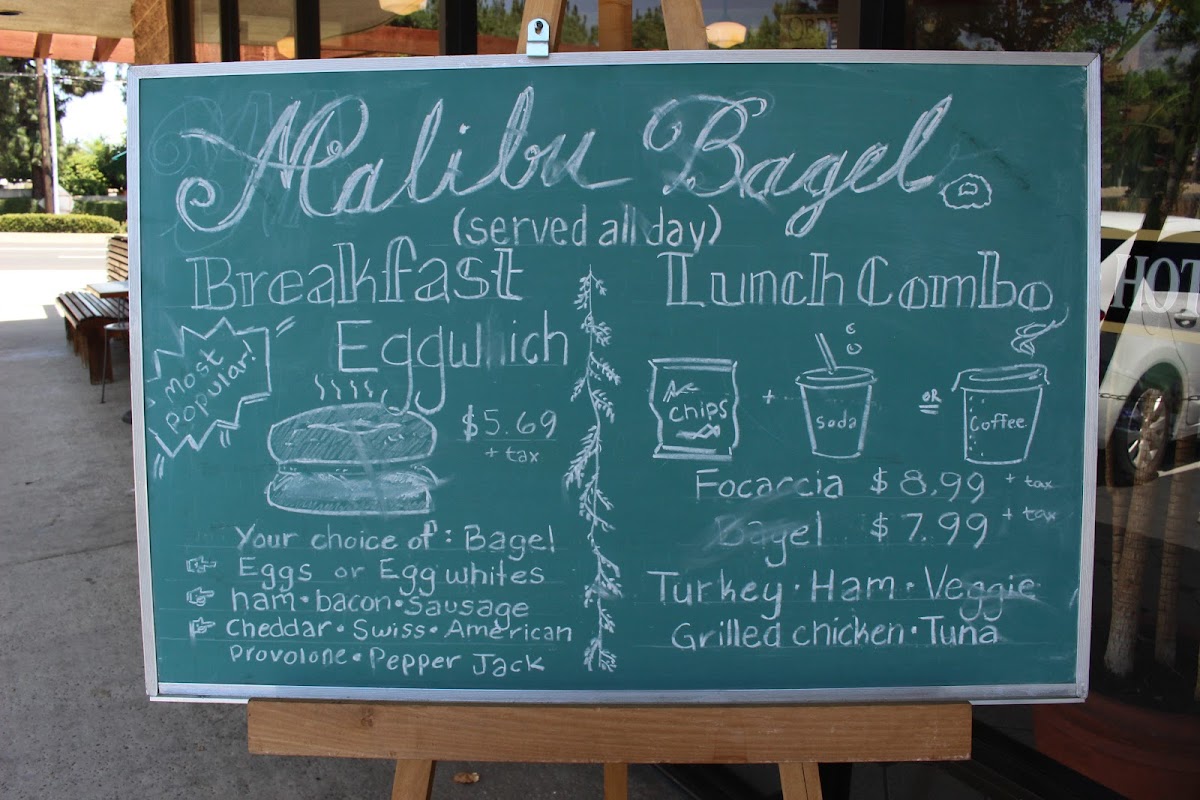 Malibu Bagel
(served all day)
Breakfast
Eggwhich
Most
popular!
$5.69
+ tax
Your choice of: Bagel
Eggs or Egg whites
ham • bacon • Sausage
Cheddar • Swiss • American
provolone • Pepper Jack
Lunch Combo
chips
+
soda
OR
Coffee
Focaccia $8.99 + tax
Bagel $7.99 + tax
Turkey • Ham • Veggie
Grilled chicken • Tuna
HOT